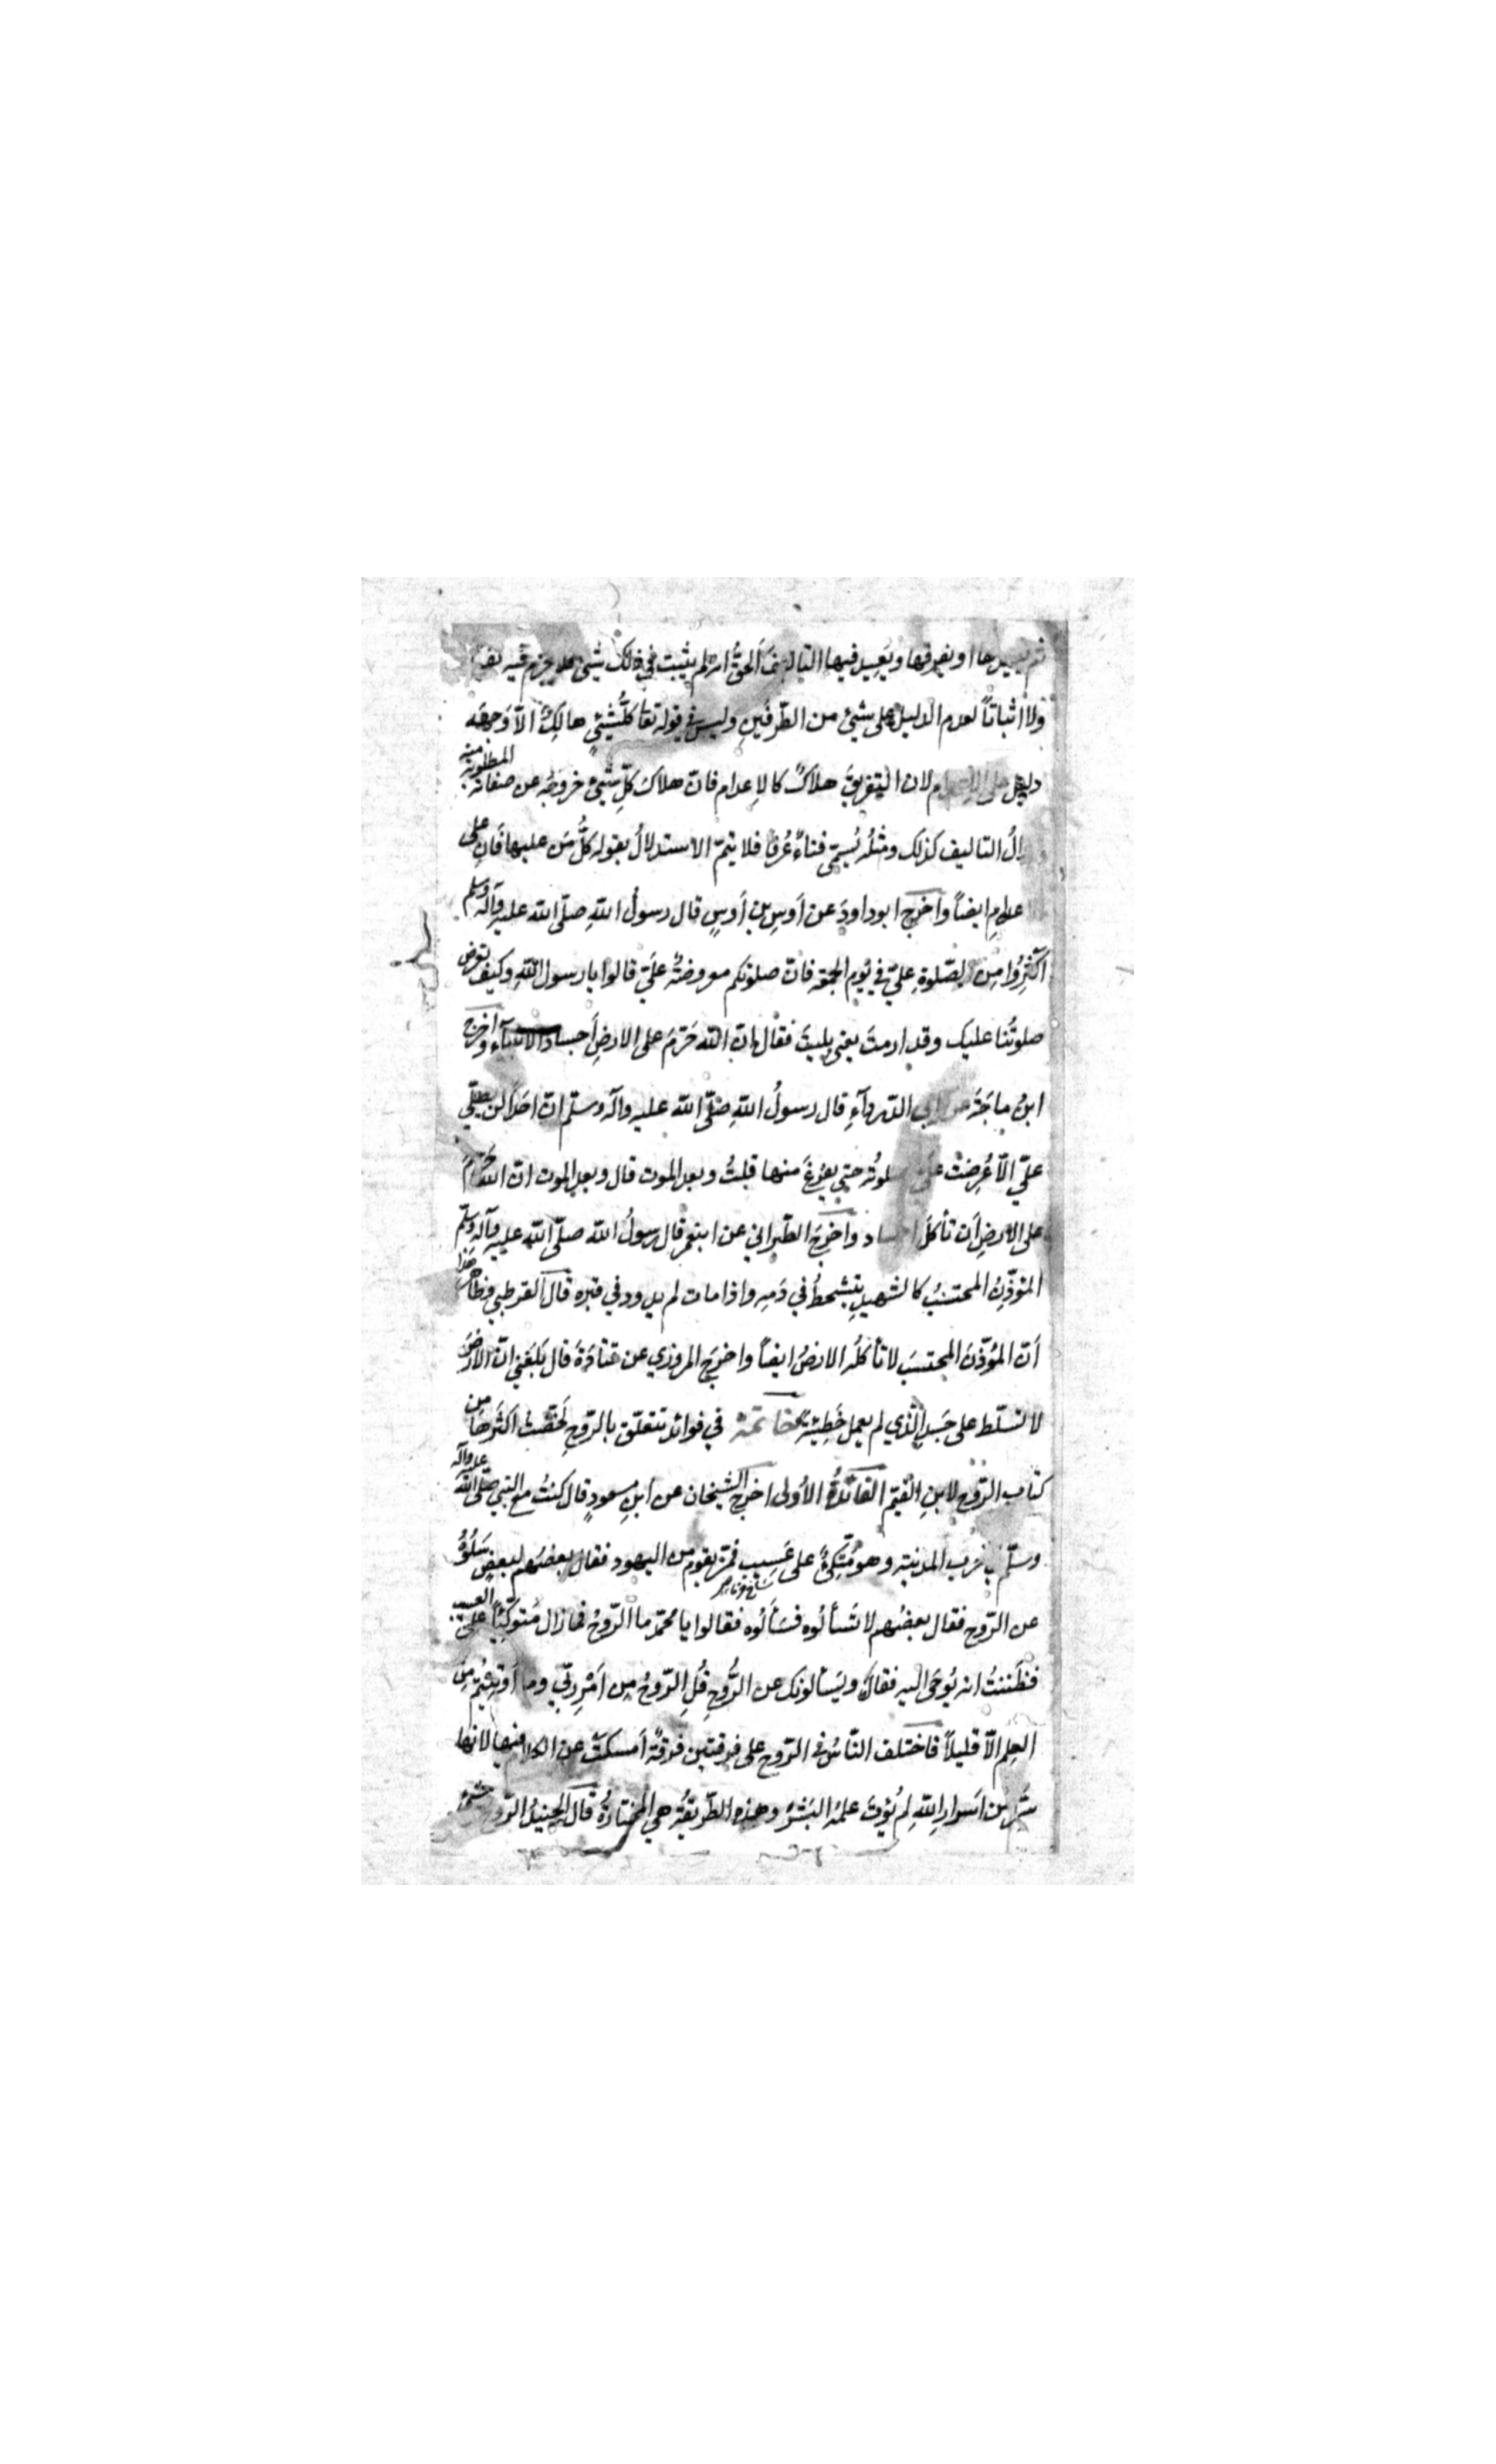 ثم يعيدها او يفرقها ويعيد فيها التاليف الحقُّ انه لم يثبت في ذلك شيئ فلا جزم فيه نفيا
ولا اثباتاً لعدم الدليل على شيئ من الطّرفَينِ وليس في قوله تعا كلُّ شيئٍ هالكٌ الّا وَجهَه
دليل على الاعدام لان التفريقَ هلاكٌ كالاِعدام فانّ هلاك كلِّ شيئ خروجُه عن صفاته المطلوبة منه
وزوالُ التاليف كذلك ومثلُه يُسمّى فناءً عُرفا فلا يتمّ الاستدلالُ بقوله كلُّ مَن عليها فَانٍ على
الاعدامِ ايضاً واخرج ابو داودَ عن اَوسِ بنِ اَوسٍ قال رسولُ اللهِ صلّى الله عليه وآله وسلم
اَكثِرُوا مِن الصّلوةِ علَيّ في يَوم الجمعه فانّ صلوتكم معروضةٌ علَيّ قالوا يا رسول اللهِ وكيف تعرض
صلوتُنا عليك وقد ارمتَ يعنى بليتَ فقال انّ اللهَ حَرّمَ على الارضِ اَجساد الانبيآءِ واخرج
ابنُ ماجَةَ عن ابي الدّردآءِ قال رسولُ اللهِ صَلّى الله عليه وآله وسلّم انّ احدًا لن يصلّي
علَيّ الّا عُرِضتْ علَيّ صلوتُه حتى يفرُغَ منها قلتُ وبعد الموت قال وبعد الموت انّ الله حرّم
على الارضِ اَن تأكلَ اجساد واخرجَ الطّبراني عن ابن عمر قال رسولُ الله صلّى الله عليه وآله وسلّم
المؤذّنُ المحتسبُ كالشهيدِ يتشحطُ في دَمِه واذا مات لم يدود في قبره قال القرطبي وظاهر هذا
اَنّ المُؤذّنَ المحتسبَ لا تأكلُه الارضُ ايضاً واخرجَ المروزي عن قتادَةَ قال بَلَغَني انّ الارضَ
لا تسلّط على جَسدِ الّذي لم يعمل خَطِيئةً خاتمة في فوائد تتعلّق بالرّوحِ لَخّصتُ اكثَرها من
كتاب الرّوح لابنِ القيّم الفائدةُ الاُولى اخرج الشيخان عن ابنِ مسعودٍ قال كنتُ مع النبي صلّى الله عليه وآله
وسلّم في خرب المدينة وهو مُتّكِئٌ على عَسِيب فمرّ بقوم من اليهود فقال بعضُهم لبعضٍ سَلُوهُ
شاخ خرما
عن الرّوح فقال بعضُهم لا تَسألُوه فسَألُوه فقالوا يا محمّد ما الرّوحُ فما زال مُتوكّيًا على العسيب
فظَننتُ انه يُوحَى اليه فقالَ ويَسألونك عن الرُّوحِ قُلِ الرّوحُ مِن اَمْرِ ربّي وما اُوتِيتُم مِنَ
العِلمِ الّا قليلاً فاختلف النّاسُ في الرّوح على فرقتين فرقةٌ اَمسكتْ عن الكلام فيها لانها
سَرّ من اَسرارِ اللهِ لم يُؤتَ علمُه البَشرُ وهذه الطّريقةُ هي المختارةُ قال الجنيدُ الرّوح شيئ